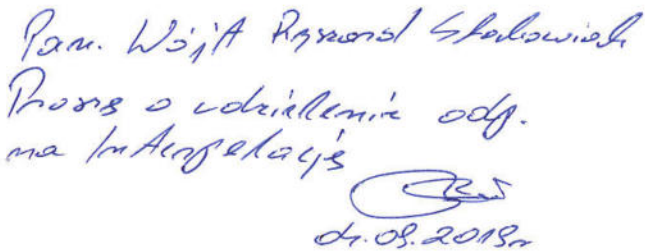 Pan. Wójt Ryszard Stachowiak
Proszę o udzielenie odp.
na Interpelację
04.09.2019r